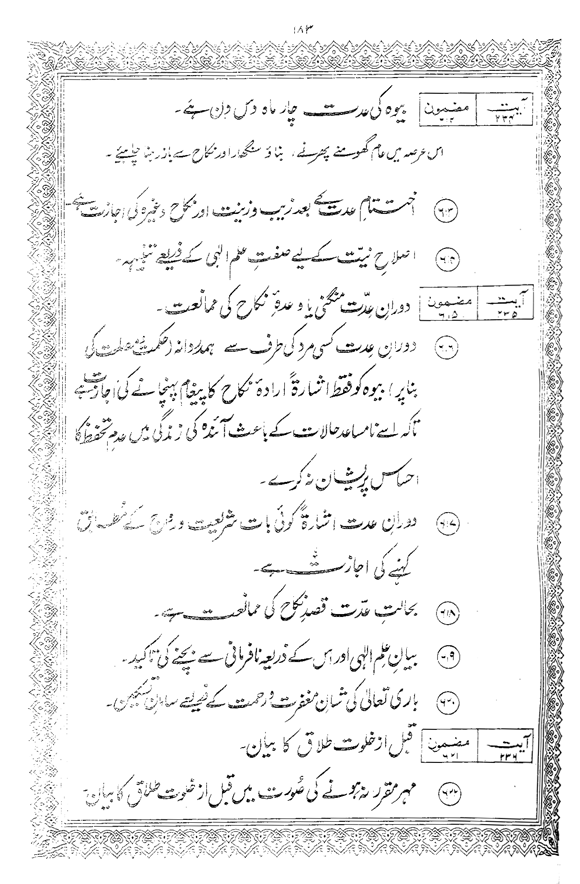 ۱۸۳
آیت ۲۳۴ مضمون ۶۰۲ بیوہ کی عدت چار ماہ دس دن ہے۔
اس عرصہ میں عام گھومنے پھرنے، بناؤ سنگھار اور نکاح سے باز رہنا چاہیئے۔
۶۰۳ اختتام عدت کے بعد زیب و زینت اور نکاح وغیرہ کی اجازت ہے۔
اصلاحِ نیّت کے لیے صفتِ علمِ الٰہی کے ذریعے تنبیہہ۔
آیت ۲۳۵ مضمون ۶۱۵ دورانِ عدّت منگنی یا وعدۂ نکاح کی ممانعت۔
۶۰۶ دورانِ عدت کسی مرد کی طرف سے ہمدردانہ (حکمت و مصلحت کی
بنا پر) بیوہ کو فقط اشارۃً ارادۂ نکاح کا پیغام پہنچانے کی اجازت ہے
تاکہ اسے نامساعد حالات کے باعث آئندہ کی زندگی میں عدمِ تحفظ کا
احساس پریشان نہ کرے۔
۶۱۷ دورانِ عدت اشارۃً کوئی بات شریعت و رواج کے مطابق
کہنے کی اجازت ہے۔
۶۱۸ بحالتِ عدّت قصدِ نکاح کی ممانعت ہے۔
بیانِ علمِ الٰہی اور اس کے ذریعہ نافرمانی سے بچنے کی تاکید۔
۶۲۰ باری تعالیٰ کی شانِ مغفرت و رحمت کے ذریعے سامانِ تسکین۔
آیت ۲۳۶ مضمون ۶۲۱ قبل از خلوت طلاق کا بیان۔
۶۲۲ مہر مقرر نہ ہونے کی صُورت میں قبل از خلوت طلاق کا بیان۔